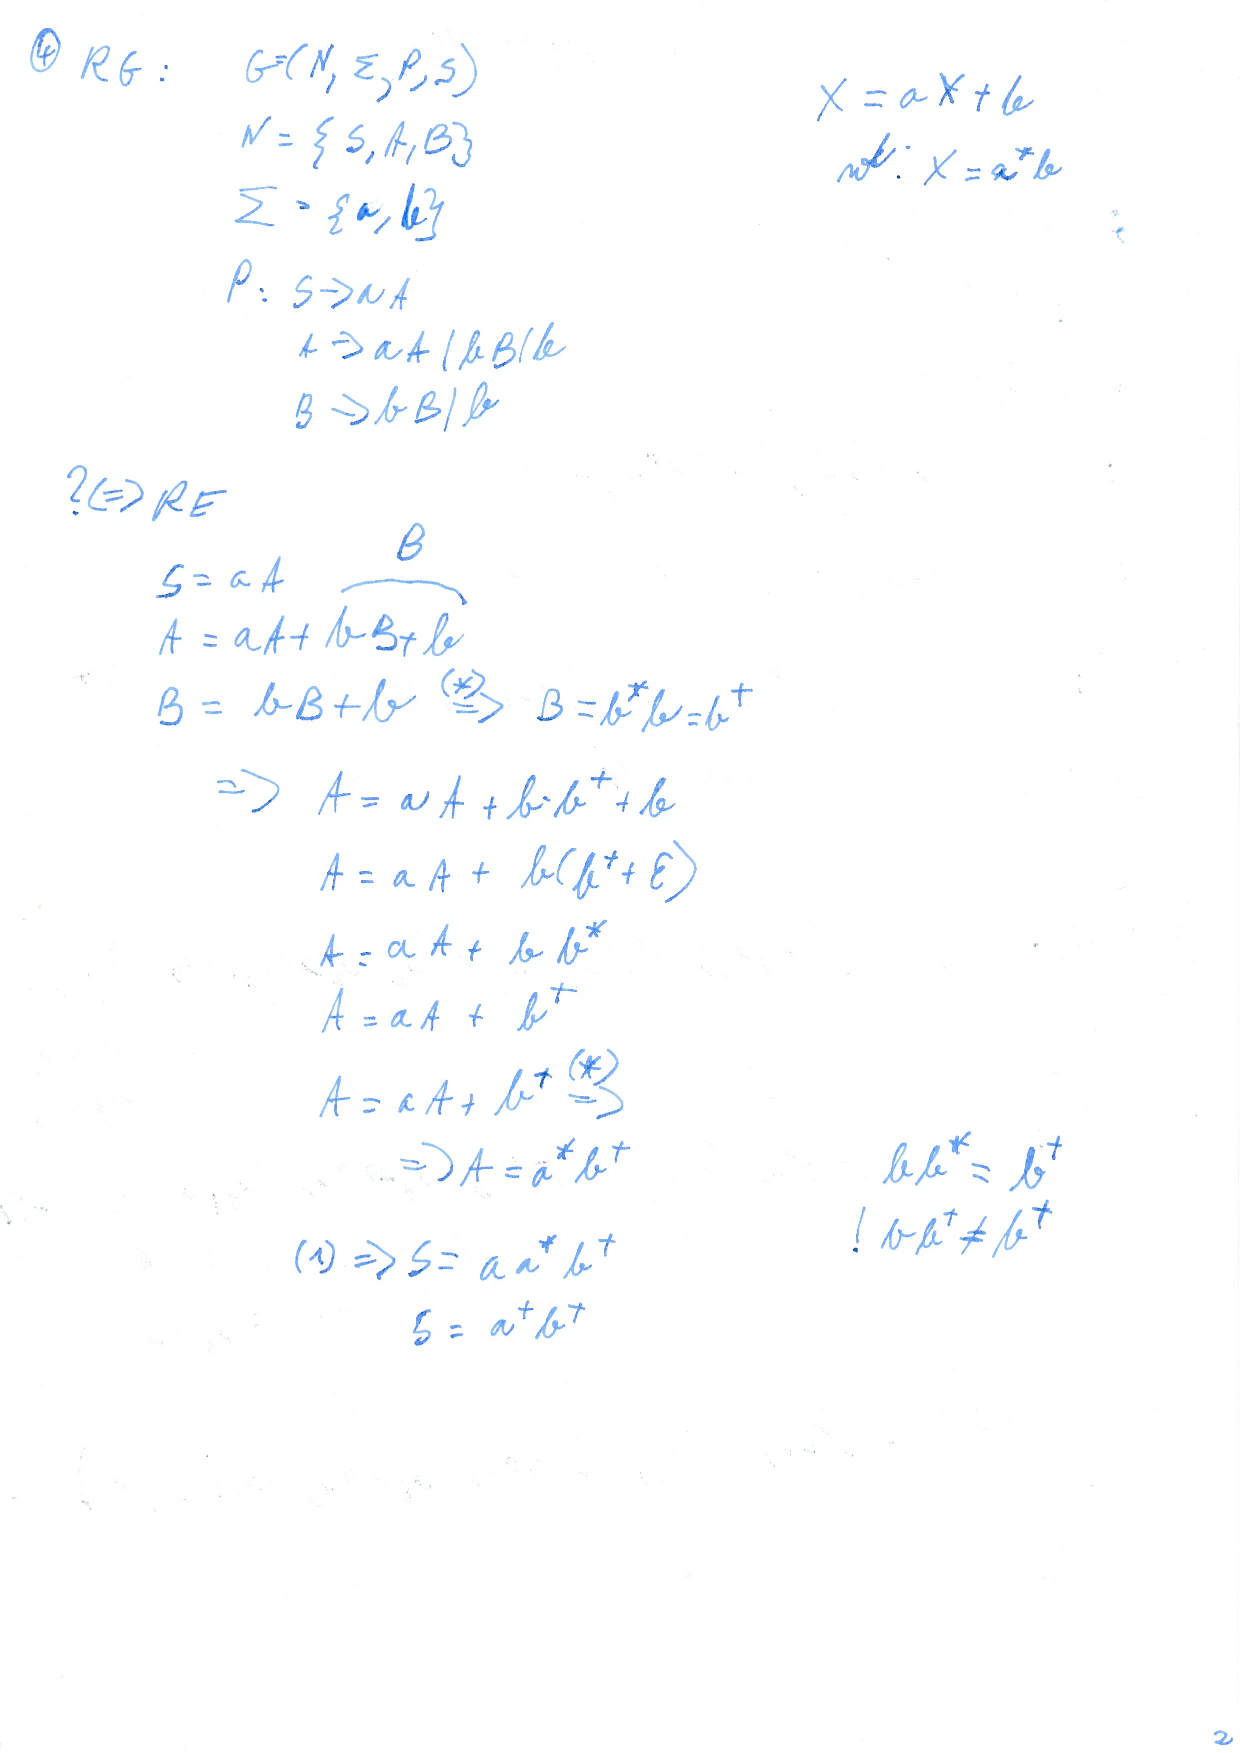 ④ RG: G=(N, Σ, P, S)
N = {S, A, B}
Σ = {a, b}
P: S → aA
A → aA | bB | b
B → bB | b
X = aX + b
X = a*b
? (=> RE
B
S = aA
A = aA + bB + b
B = bB + b (*) => B = b*b = b⁺
=> A = aA + b·b⁺ + b
A = aA + b(b⁺ + ε)
A = aA + b b*
A = aA + b⁺
A = aA + b⁺ (*) =>
=> A = a*b⁺
(1) => S = a a* b⁺
S = a⁺b⁺
bb* = b⁺
! bb⁺ ≠ b⁺
2